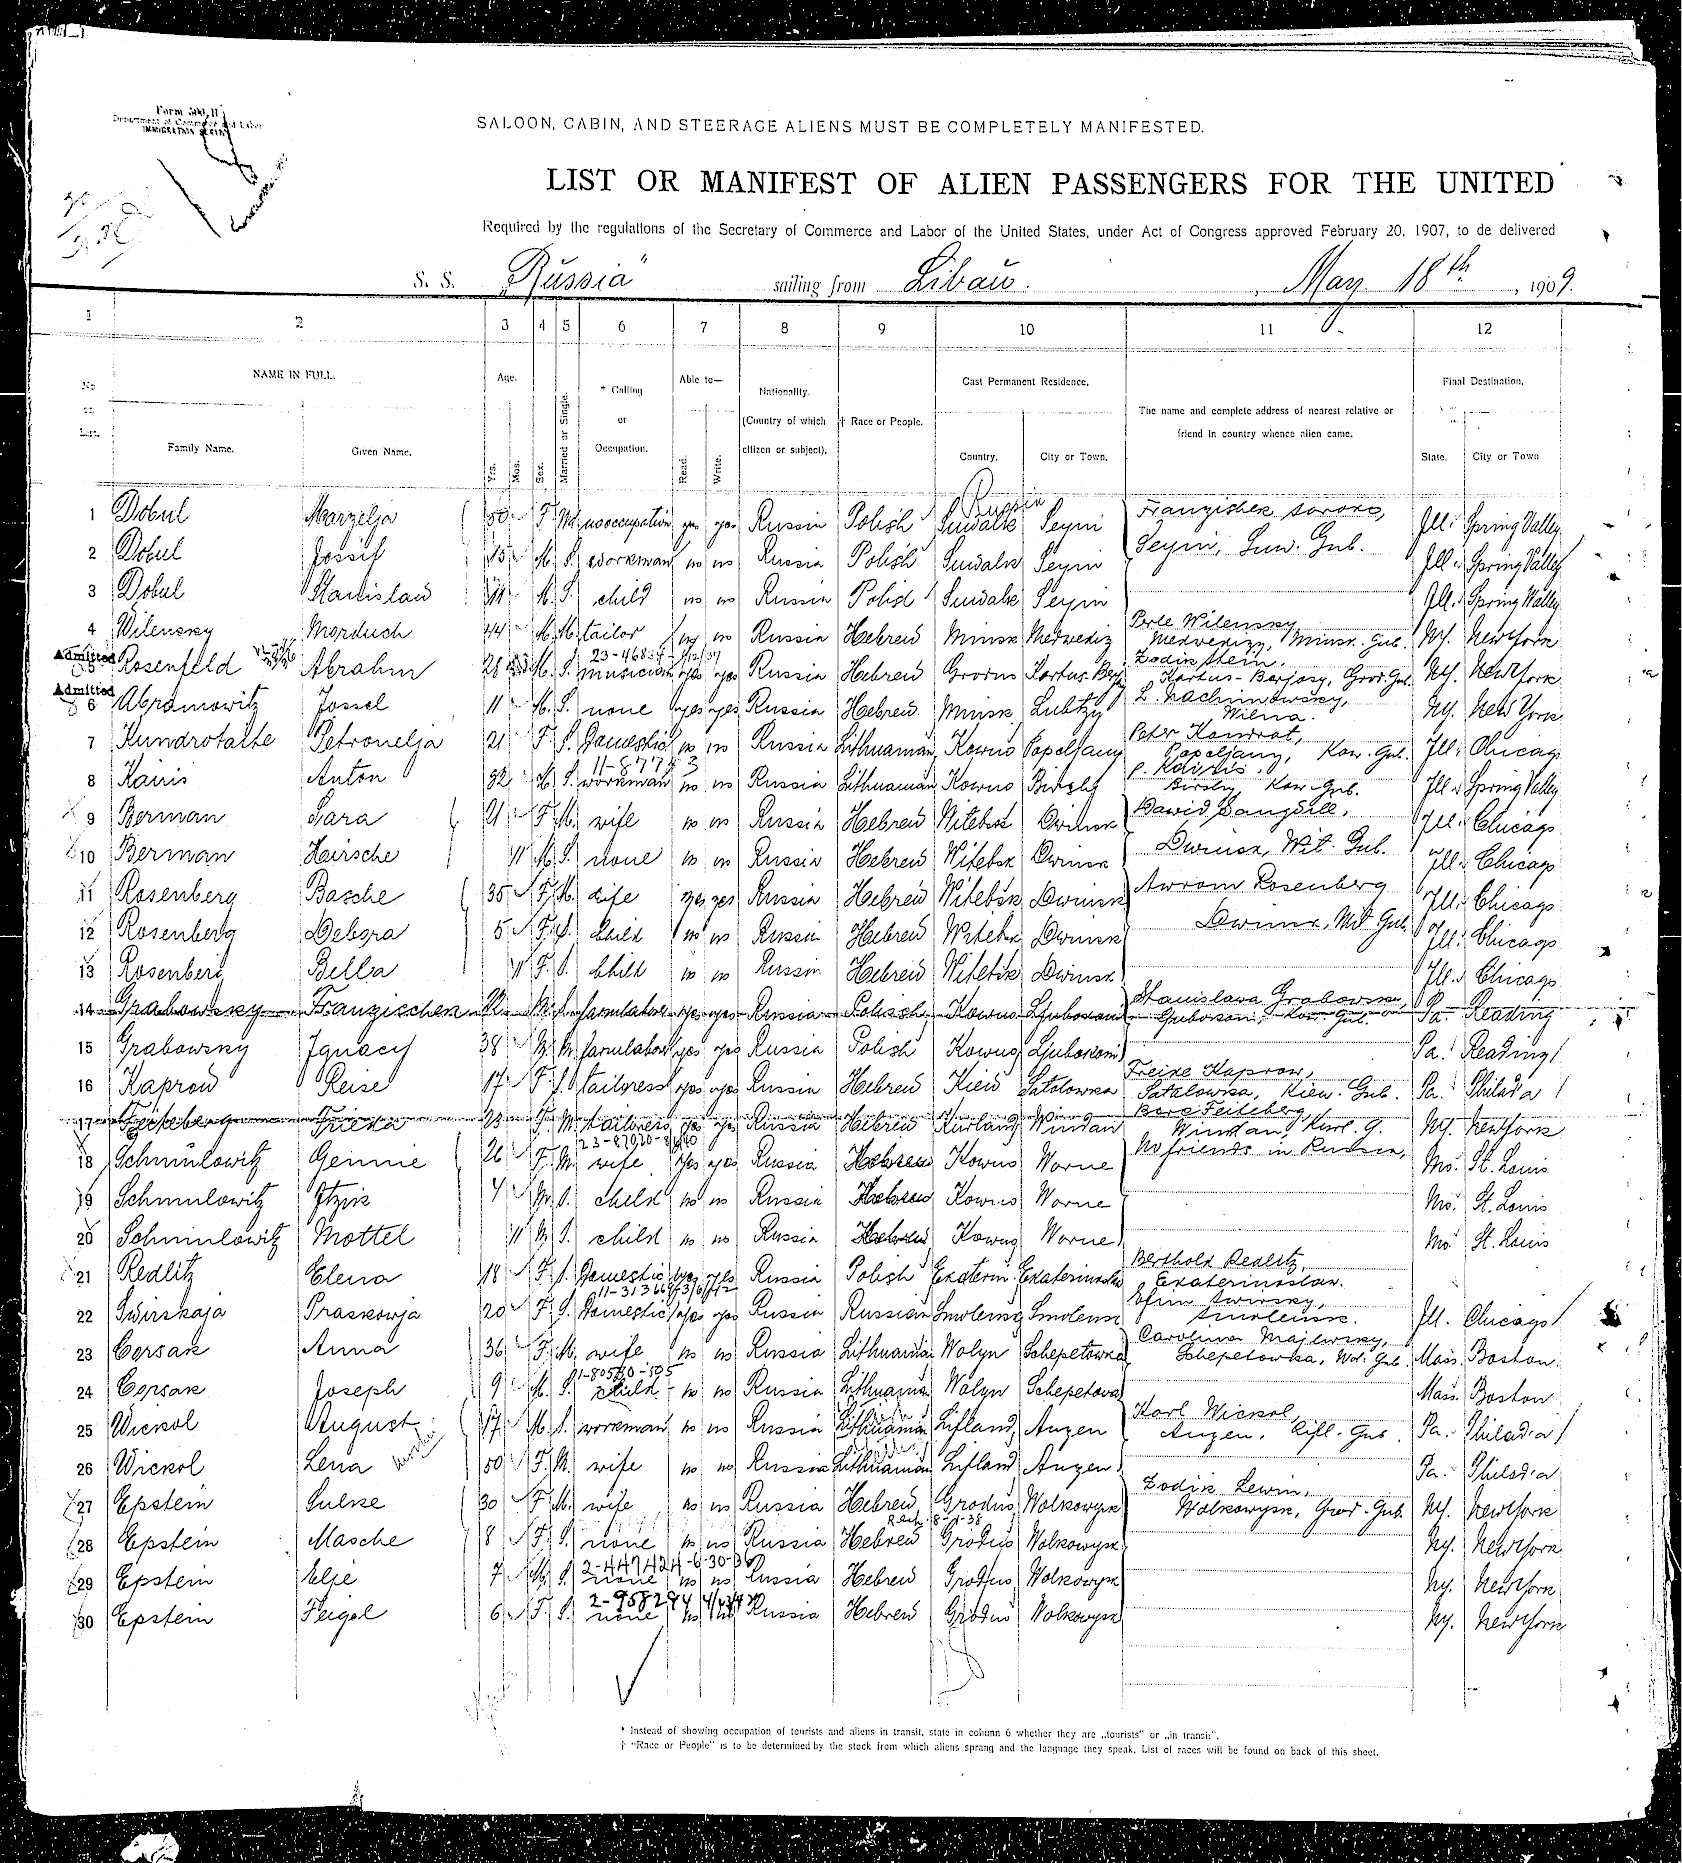 Form 500 B
Department of Commerce and Labor
IMMIGRATION SERVICE
SALOON, CABIN, AND STEERAGE ALIENS MUST BE COMPLETELY MANIFESTED.
LIST OR MANIFEST OF ALIEN PASSENGERS FOR THE UNITED
Required by the regulations of the Secretary of Commerce and Labor of the United States, under Act of Congress approved February 20, 1907, to de delivered
S. S. "Russia" sailing from Libau. May 18th, 1909.
1 2 3 4 5 6 7 8 9 10 11 12
No. on List. NAME IN FULL. Family Name. Given Name. Age. Yrs. Mos. Sex. Married or Single. * Calling or Occupation. Able to— Read. Write. Nationality. (Country of which citizen or subject). † Race or People. Cast Permanent Residence. Country. City or Town. The name and complete address of nearest relative or friend in country whence alien came. Final Destination. State. City or Town
Russia
1 Dobul Marzelja 50 F. Wd. no occupation yes yes Russia Polish Suwalk Seyni Franzishek Seyni, Suw. Gub. Ill. Spring Valley
2 Dobul Jossif 15 M. S. workman no no Russia Polish Suwalk Seyni Ill. Spring Valley
3 Dobul Stanislaw 11 M. S. child no no Russia Polish Suwalk Seyni Ill. Spring Valley
4 Wilensky Morduch 44 M. M. tailor no no Russia Hebrew Minsk Medwediz Perle Wilensky Medwedizy, Minsk. Gub. NY. New York
Admitted 5 Rosenfeld Abrahm 28 M. S. musician yes yes Russia Hebrew Grodno Kartus-Berj. Zodik Stein. Kartus-Berjosy, Grod. Gub. NY. New York
Admitted 6 Abramowitz Jossel 11 M. S. none yes yes Russia Hebrew Minsk Lubtzy L. Nachimowsky, Wilna. NY. New York
7 Kundrotaite Petronelja 21 F. S. Domestic no no Russia Lithuanian Kowno Popeljany Peter Kondrat, Popeljany, Kow. Gub. Ill. Chicago
8 Kairis Anton 32 M. S. workman no no Russia Lithuanian Kowno Birshy P. Kairis. Birshy, Kow. Gub. Ill. Spring Valley
9 Berman Sara 21 F. M. wife no no Russia Hebrew Witebsk Dwinsk Dawid Dwinsk, Wit. Gub. Ill. Chicago
10 Berman Hairsche 11 M. S. none no no Russia Hebrew Witebsk Dwinsk Ill. Chicago
11 Rosenberg Basche 35 F. M. wife yes yes Russia Hebrew Witebsk Dwinsk Awrom Rosenberg Dwinsk, Wit. Gub. Ill. Chicago
12 Rosenberg Debora 5 F. S. child no no Russia Hebrew Witebsk Dwinsk Ill. Chicago
13 Rosenberg Bella 11 F. S. child no no Russia Hebrew Witebsk Dwinsk Ill. Chicago
14 Grabowsky Franzischek M. S. farmlabor yes yes Russia Polish Kowno Ljubokoni Stanislawa Grabowska, Kow. Gub. Pa. Reading
15 Grabowsky Ignacy 38 M. M. farmlabor yes yes Russia Polish Kowno Ljubokoni Pa. Reading
16 Kaprow Reise 17 F. S. tailoress yes yes Russia Hebrew Kiew Satalowka Freize Kaprow, Satalowka, Kiew. Gub. Pa. Philad'a
17 Feitelberg Frieda 23 F. M. tailoress yes yes Russia Hebrew Kurland Windau Bere Feitelberg, Windau, Kurl. G. NY. New York
18 Schmulowitz Gennie 26 F. M. wife yes yes Russia Hebrew Kowno Worne No friends in Russia, Mo. St. Louis
19 Schmulowitz Itzik 4 M. S. child no no Russia Hebrew Kowno Worne Mo. St. Louis
20 Schmulowitz Mottel 11 M. S. child no no Russia Hebrew Kowno Worne Mo. St. Louis
21 Redlitz Elena 18 F. S. Domestic yes yes Russia Polish Ekaterin Ekaterinoslaw Berthold Redlitz, Ekaterinoslaw.
22 Swirskaja Praskowja 20 F. S. Domestic yes yes Russia Russian Smolensk Smolensk Efim Swirsky, Smolensk. Ill. Chicago
23 Corsak Anna 36 F. M. wife no no Russia Lithuanian Wolyn Schepetowka Carolina Majewsky, Schepetowka, Wol. Gub. Mass. Boston
24 Corsak Joseph 9 M. S. child no no Russia Lithuanian Wolyn Schepetowka Mass. Boston
25 Wickol August 17 M. S. workman no no Russia Lithuanian Lifland Anzen Karl Wickol, Anzen, Lifl. Gub. Pa. Philad'a
26 Wickol Lena 50 F. M. wife no no Russia Lithuanian Lifland Anzen Pa. Philad'a
27 Epstein Sulke 30 F. M. wife no no Russia Hebrew Grodno Wolkowysk Zodik Lewin, Wolkowysk, Grod. Gub. NY. New York
28 Epstein Masche 8 F. S. none no no Russia Hebrew Grodno Wolkowysk NY. New York
29 Epstein Elje 7 M. S. none no no Russia Hebrew Grodno Wolkowysk NY. New York
30 Epstein Feigel 6 F. S. none no no Russia Hebrew Grodno Wolkowysk NY. New York
* Instead of showing occupation of tourists and aliens in transit, state in column 6 whether they are „tourists" or „in transit".
† "Race or People" is to be determined by the stock from which aliens sprang and the language they speak. List of races will be found on back of this sheet.